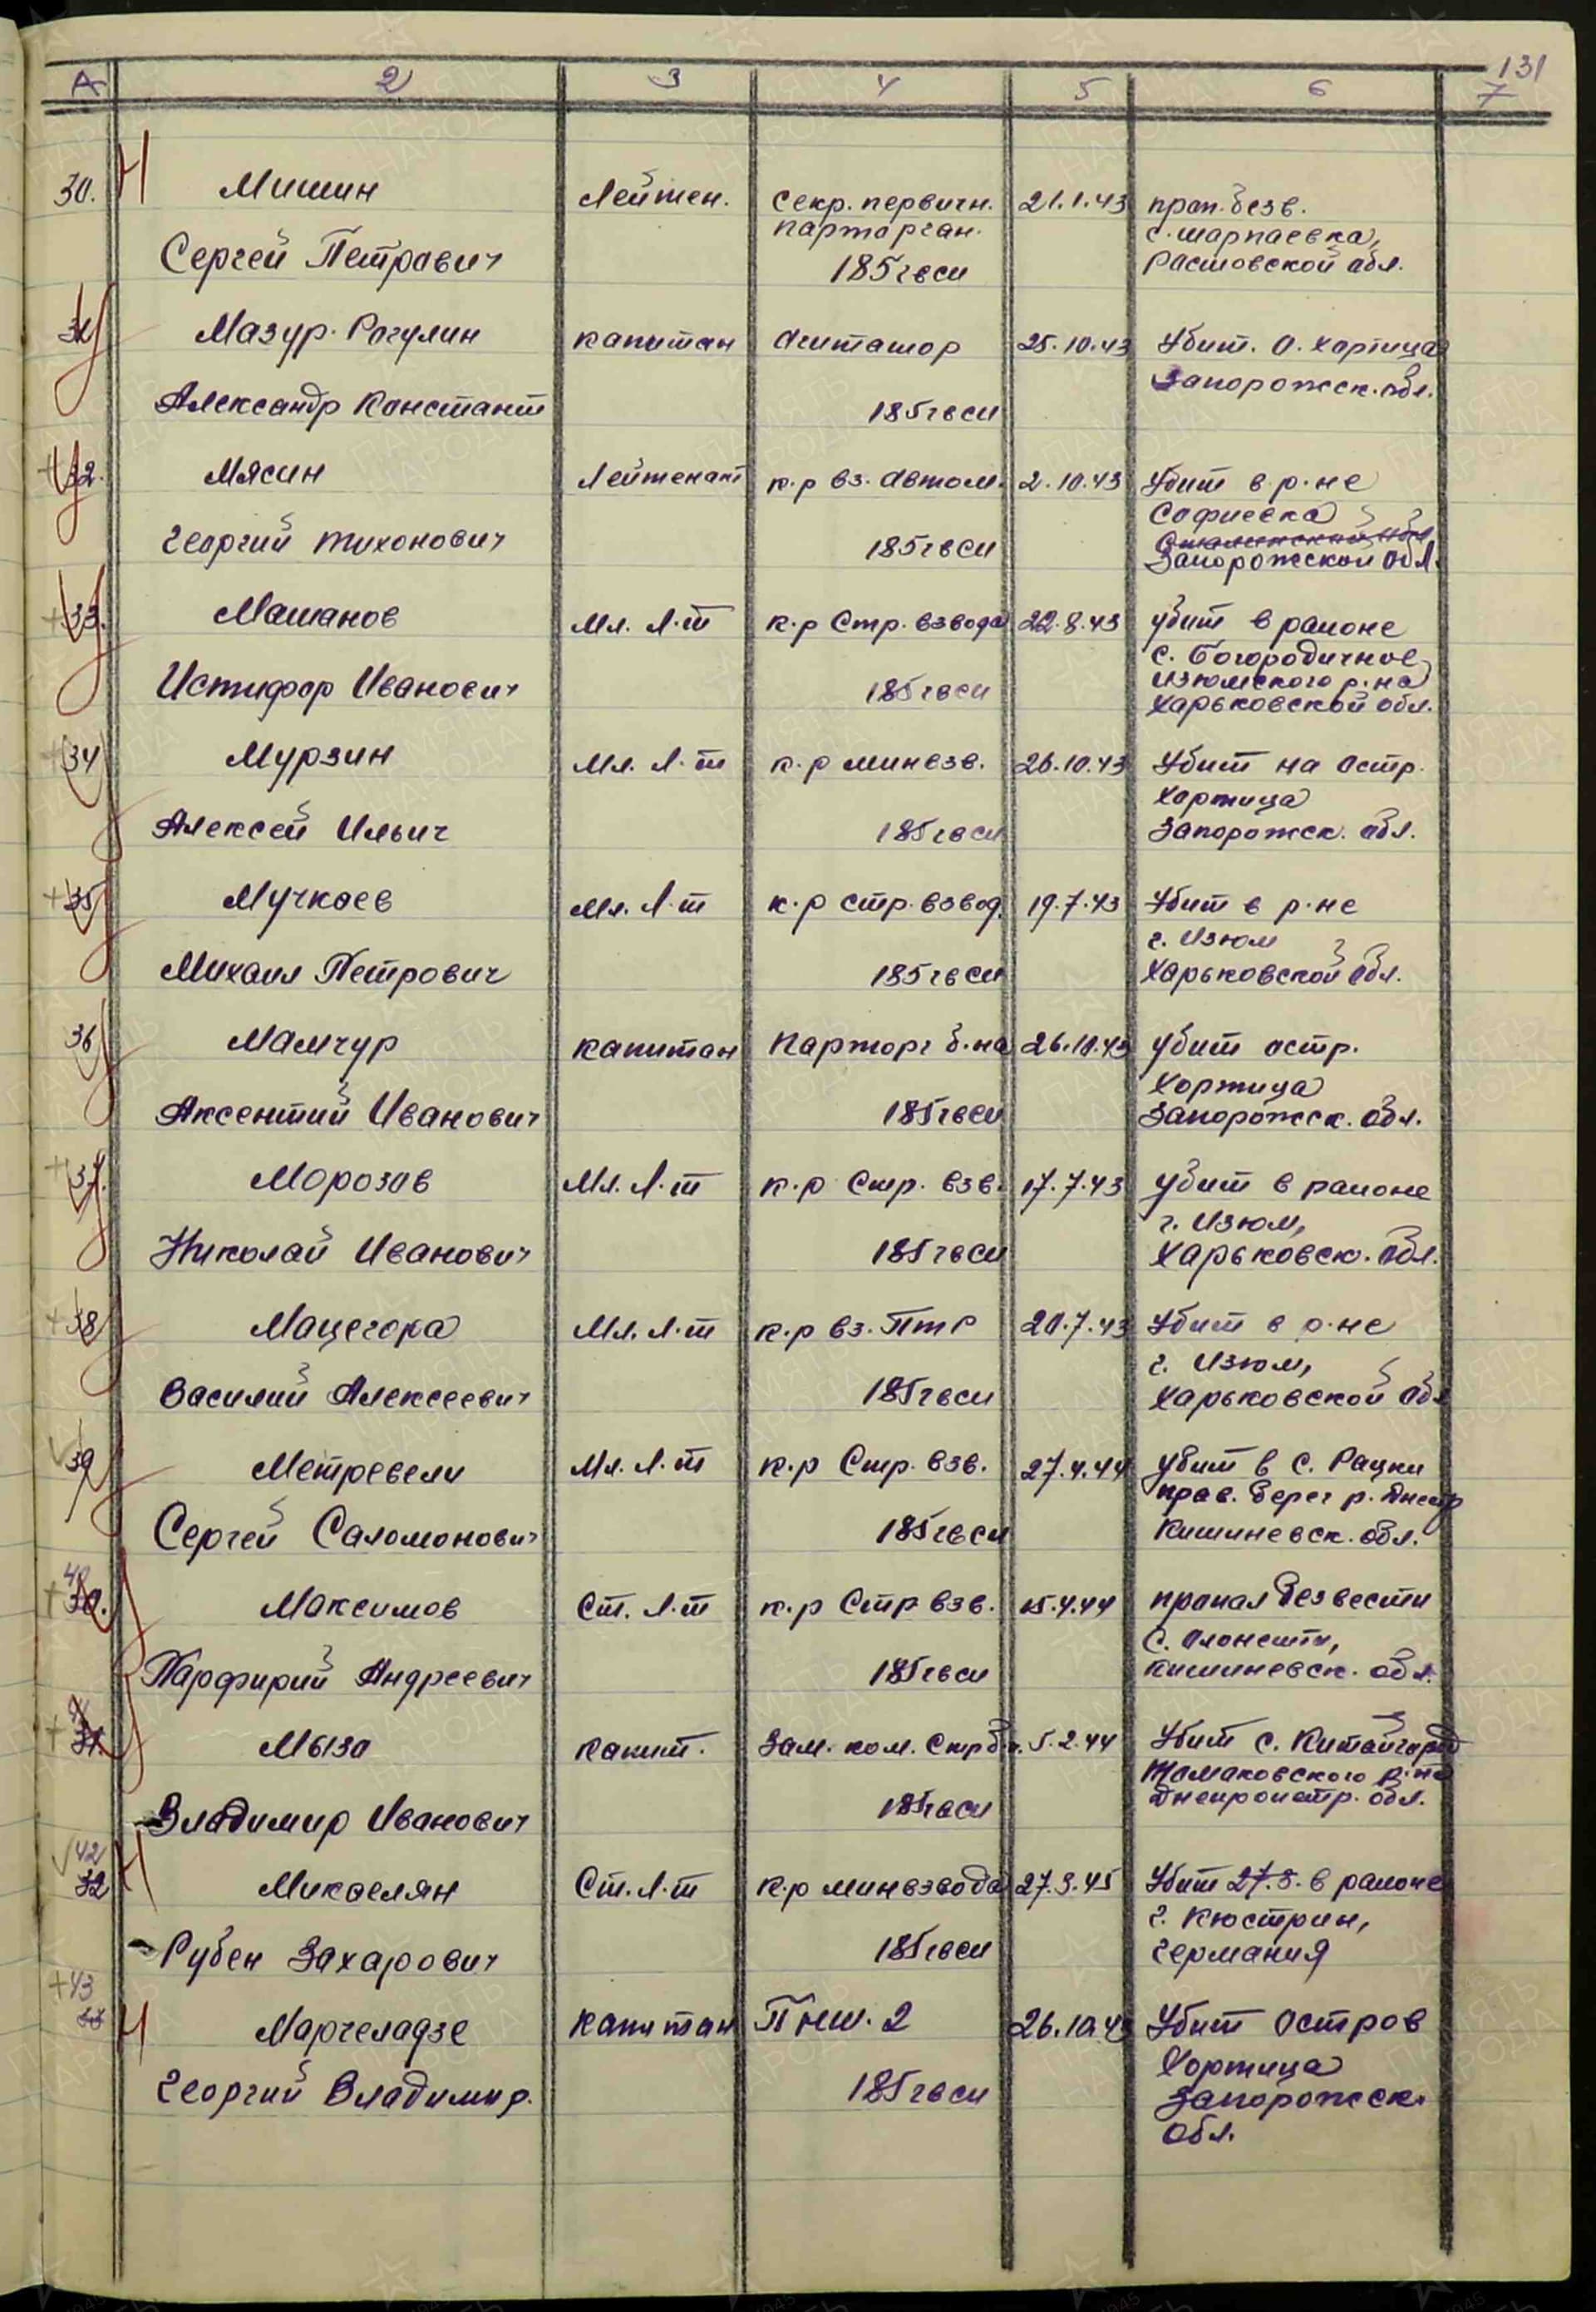 131
А 2 3 4 5 6 7
30. Н Мишин Лейтен. Секр. первичн. 21.1.43 проп. безв.
парторган. с. Шарпаевка,
Сергей Петрович 185 гвсп Ростовской обл.
31 Мазур-Рогулин капитан Агитатор 25.10.43 Убит. о. Хортица
Запорожск. обл.
Александр Констант 185 гвсп
+ 32. Мясин Лейтенант к-р вз. автом. 2.10.43 Убит в р-не
Софиевка
Георгий Тихонович 185 гвсп Запорожской обл.
+ 33. Машанов Мл. Л-т к-р Стр. взвода 22.8.43 убит в районе
с. Богородичное
Истифор Иванович 185 гвсп Изюмского р-на
Харьковской обл.
+ 34 Мурзин Мл. Л-т к-р минвзв. 26.10.43 Убит на остр.
Хортица
Алексей Ильич 185 гвсп Запорожск. обл.
+ 35 Мучкаев Мл. Л-т к-р стр. взвод. 19.7.43 Убит в р-не
г. Изюм
Михаил Петрович 185 гвсп Харьковской обл.
36 Мамчур капитан Парторг б-на 26.10.43 убит остр.
Хортица
Аксентий Иванович 185 гвсп Запорожск. обл.
+ 37. Морозов Мл. Л-т к-р Стр. взв. 17.7.43 убит в районе
г. Изюм,
Николай Иванович 185 гвсп Харьковск. обл.
+ 38 Мацегора Мл. Л-т к-р вз. ПТР 20.7.43 Убит в р-не
г. Изюм,
Василий Алексеевич 185 гвсп Харьковской обл
39 Метревели Мл. Л-т к-р Стр. взв. 27.4.44 убит в с. Рацки
прав. берег р. Днестр
Сергей Саломонович 185 гвсп Кишиневск. обл.
+ 40 Максимов Ст. Л-т к-р Стр взв. 15.4.44 пропал без вести
с. Олонешты,
Парфирий Андреевич 185 гвсп Кишиневск. обл.
+ 31. Мыза капит. Зам. ком. Стр б. 5.2.44 Убит с. Китайгород
Томаковского р-на
Владимир Иванович 185 гвсп Днепропетр. обл.
42
32 Н Микаелян Ст. Л-т к-р минвзвода 27.3.45 Убит 27.3. в районе
г. Кюстрин,
Рубен Захарович 185 гвсп Германия
+43
33 Н Маргеладзе капитан ПНШ. 2 26.10.43 Убит остров
Хортица
Георгий Владимир. 185 гвсп Запорожск.
обл.